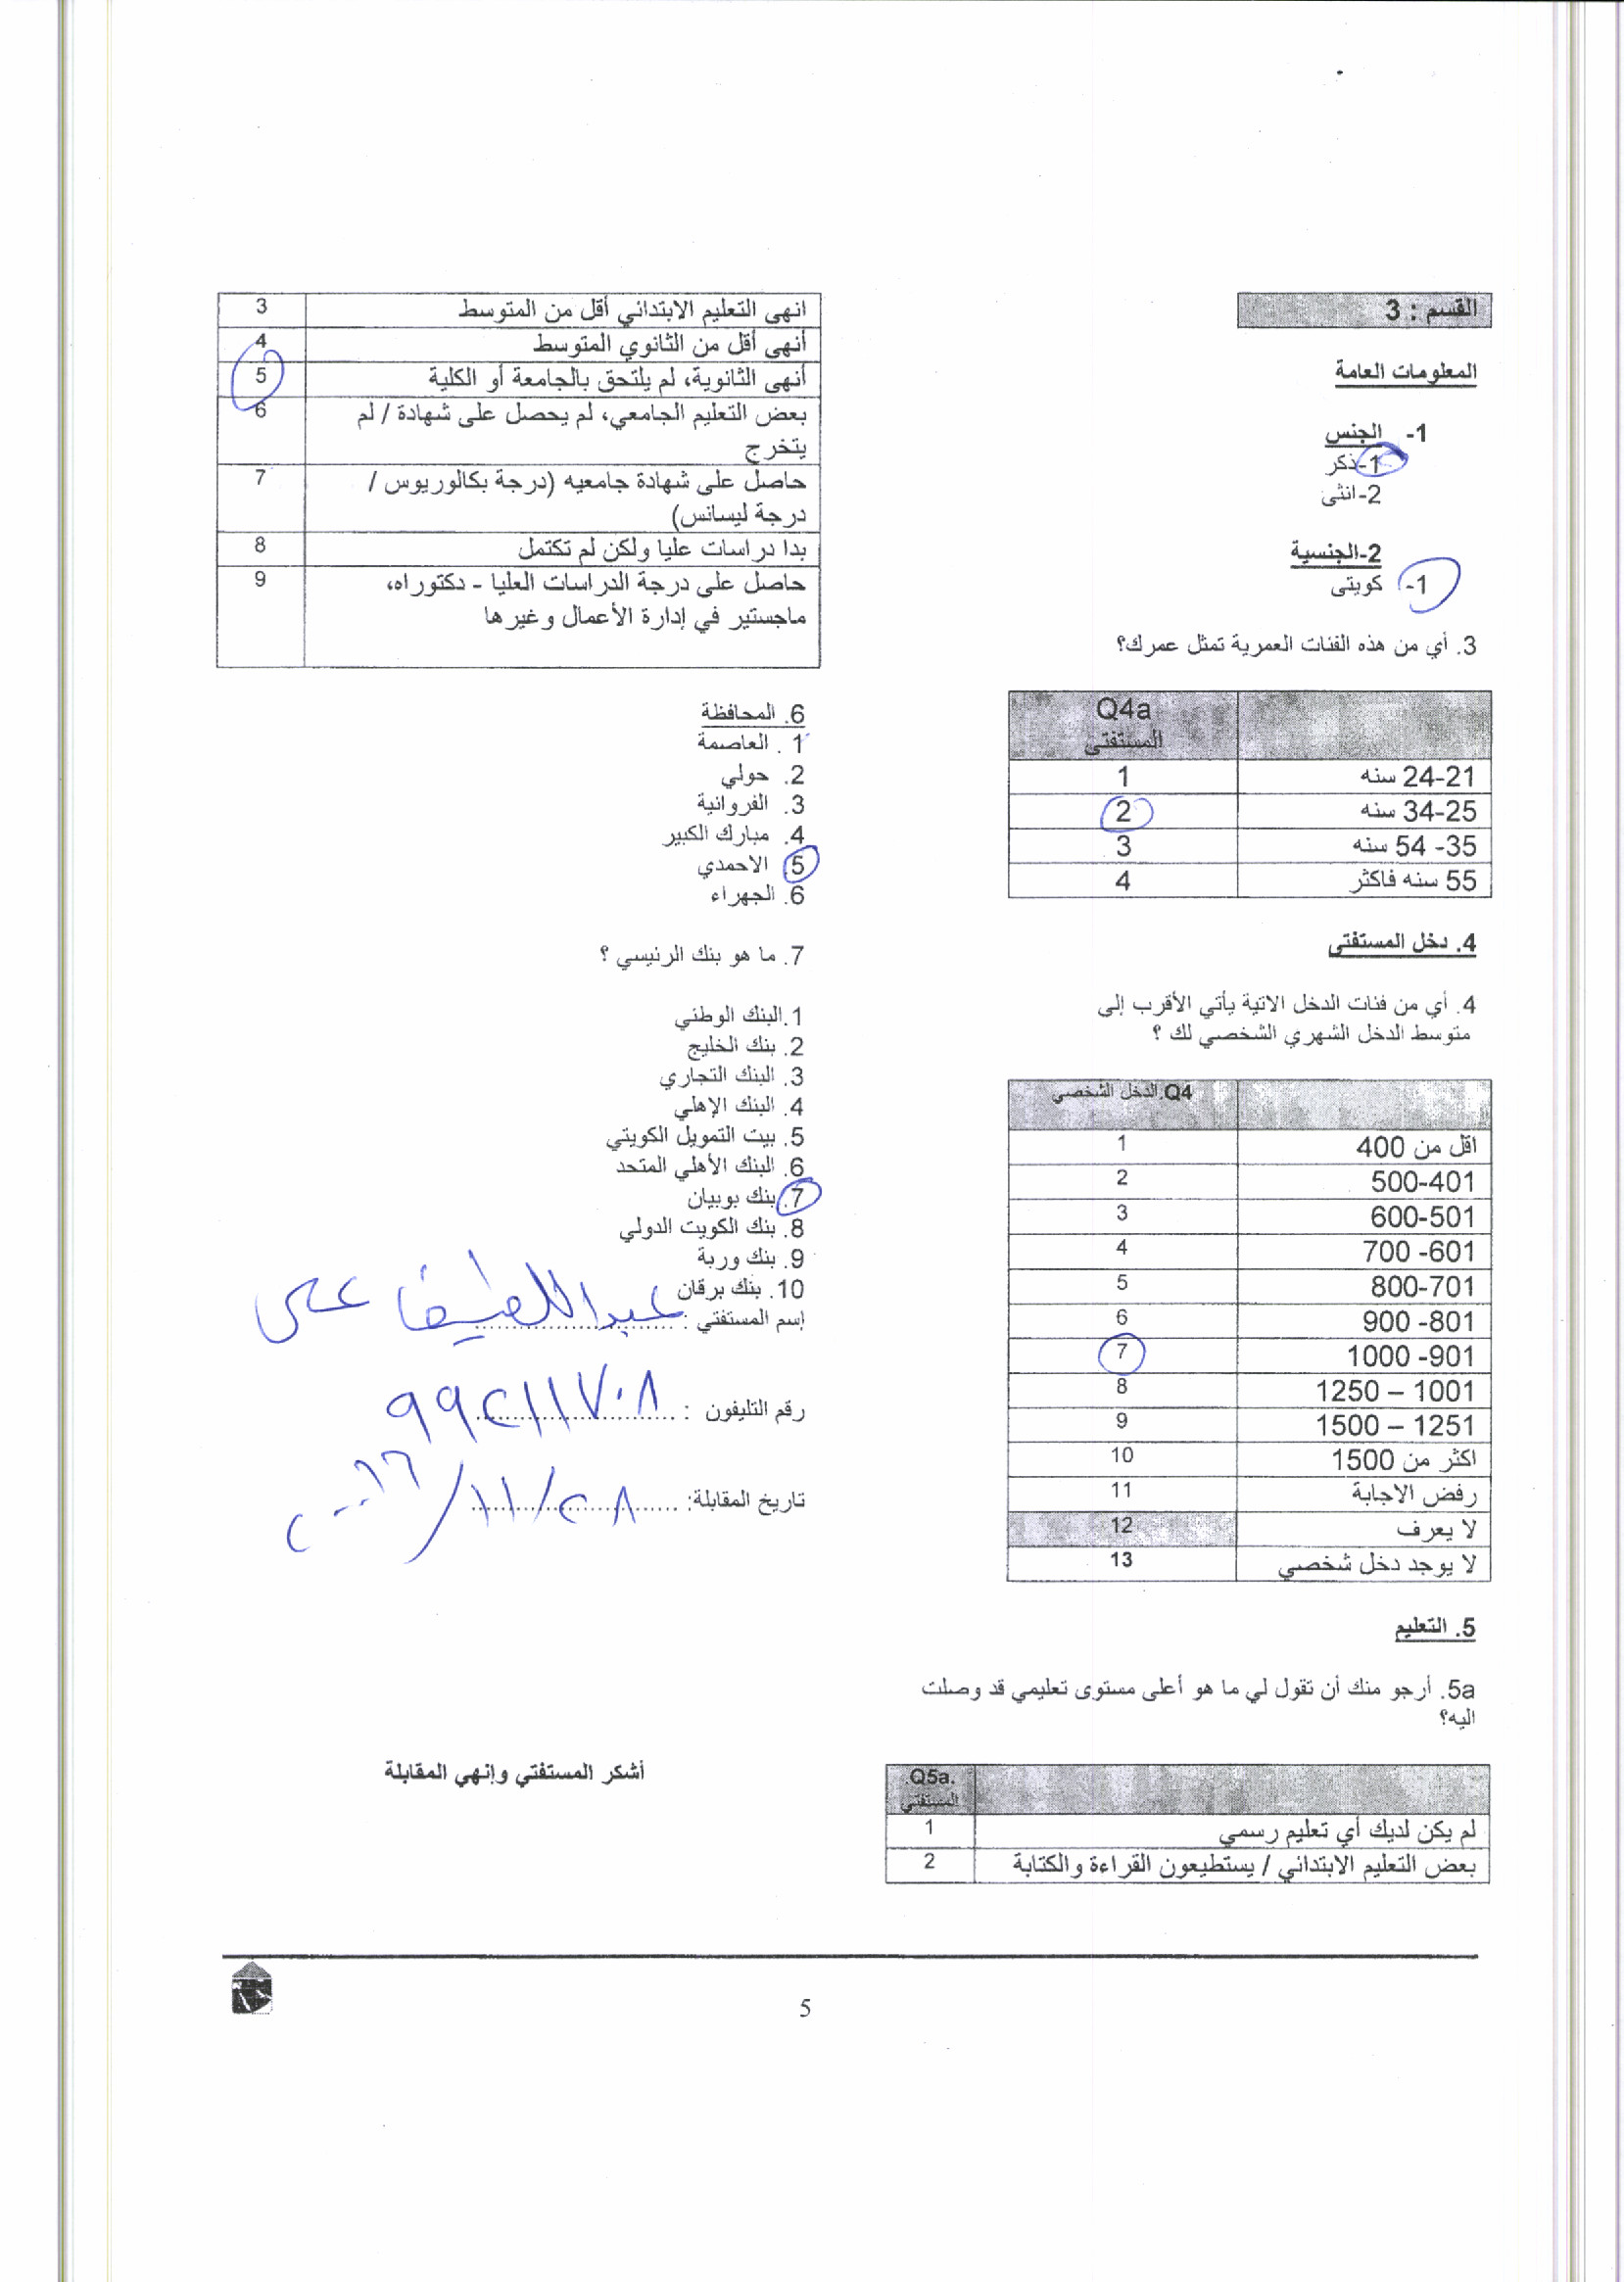 القسم : 3
المعلومات العامة
1- الجنس
1-ذكر
2-انثى
2-الجنسية
1- كويتى
3. أي من هذه الفئات العمرية تمثل عمرك؟
Q4a
المستفتى
24-21 سنه 1
34-25 سنه 2
35- 54 سنه 3
55 سنه فاكثر 4
4. دخل المستفتى
4. أي من فئات الدخل الاتية يأتي الأقرب إلى
متوسط الدخل الشهري الشخصي لك ؟
Q4.الدخل الشخصي
اقل من 400 1
500-401 2
600-501 3
700 -601 4
800-701 5
900 -801 6
1000 -901 7
1250 – 1001 8
1500 – 1251 9
اكثر من 1500 10
رفض الاجابة 11
لا يعرف 12
لا يوجد دخل شخصي 13
5. التعليم
5a. أرجو منك أن تقول لي ما هو أعلى مستوى تعليمي قد وصلت
اليه؟
Q5a.
المستفتي
لم يكن لديك أي تعليم رسمي 1
بعض التعليم الابتدائي / يستطيعون القراءة والكتابة 2
انهى التعليم الابتدائي أقل من المتوسط 3
أنهى أقل من الثانوي المتوسط 4
أنهى الثانوية، لم يلتحق بالجامعة أو الكلية 5
بعض التعليم الجامعي، لم يحصل على شهادة / لم 6
يتخرج
حاصل على شهادة جامعيه (درجة بكالوريوس / 7
درجة ليسانس)
بدا دراسات عليا ولكن لم تكتمل 8
حاصل على درجة الدراسات العليا - دكتوراه، 9
ماجستير في إدارة الأعمال وغيرها
6. المحافظة
1 . العاصمة
2. حولي
3. الفروانية
4. مبارك الكبير
5 الاحمدي
6. الجهراء
7. ما هو بنك الرئيسي ؟
1.البنك الوطني
2. بنك الخليج
3. البنك التجاري
4. البنك الإهلي
5. بيت التمويل الكويتي
6. البنك الأهلي المتحد
7. بنك بوبيان
8. بنك الكويت الدولي
9. بنك وربة
10. بنك برقان
إسم المستفتي : عبداللطيف على
رقم التليفون : ٩٩٢١١٧٠٨
تاريخ المقابلة: ٢٨/١١/٢٠١٦
أشكر المستفتي وإنهي المقابلة
5